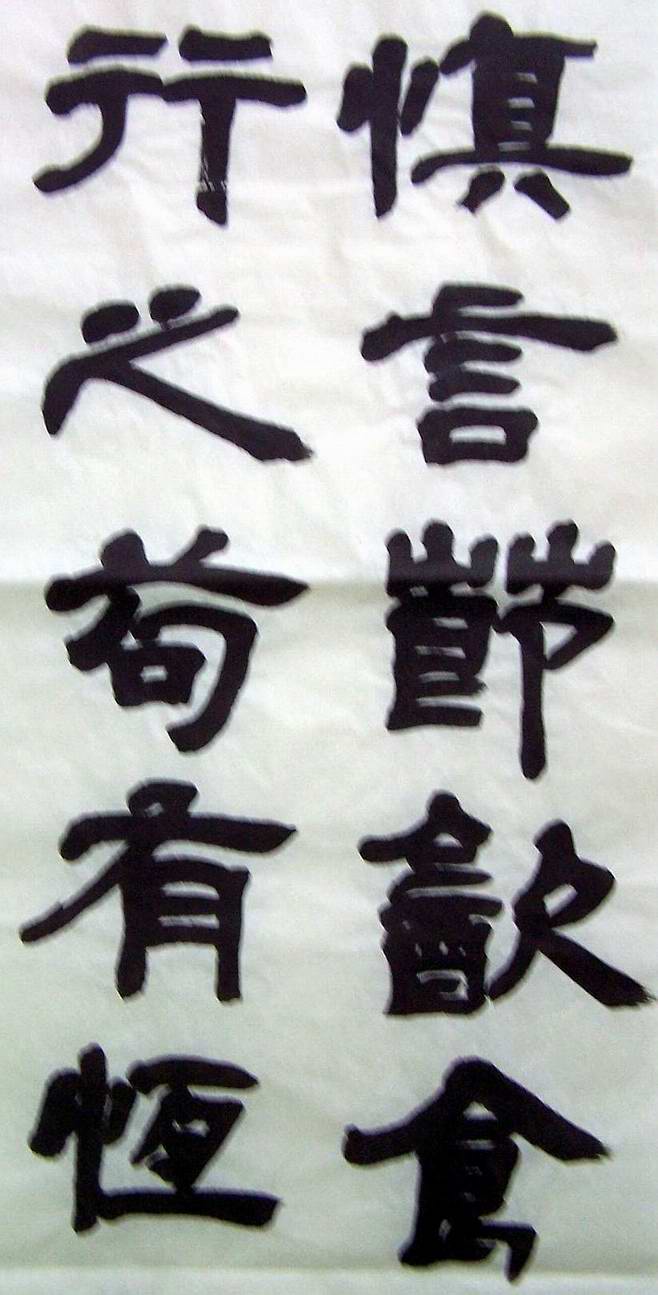 慎言節飲食
行之苟有恆